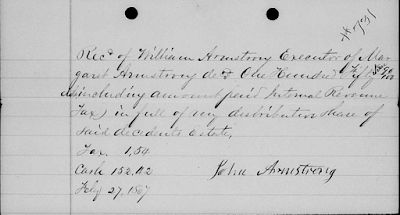 Rec'd of William Armstrong Executor of Mar-
garet Armstrong dec'd One Hundred Fifty
(including amount paid Internal Revenue
Tax) in full of my distribution share of
said decedents estate.
Tax. 1,54
Cash 152.
Feby 27. 1867 John Armstrong